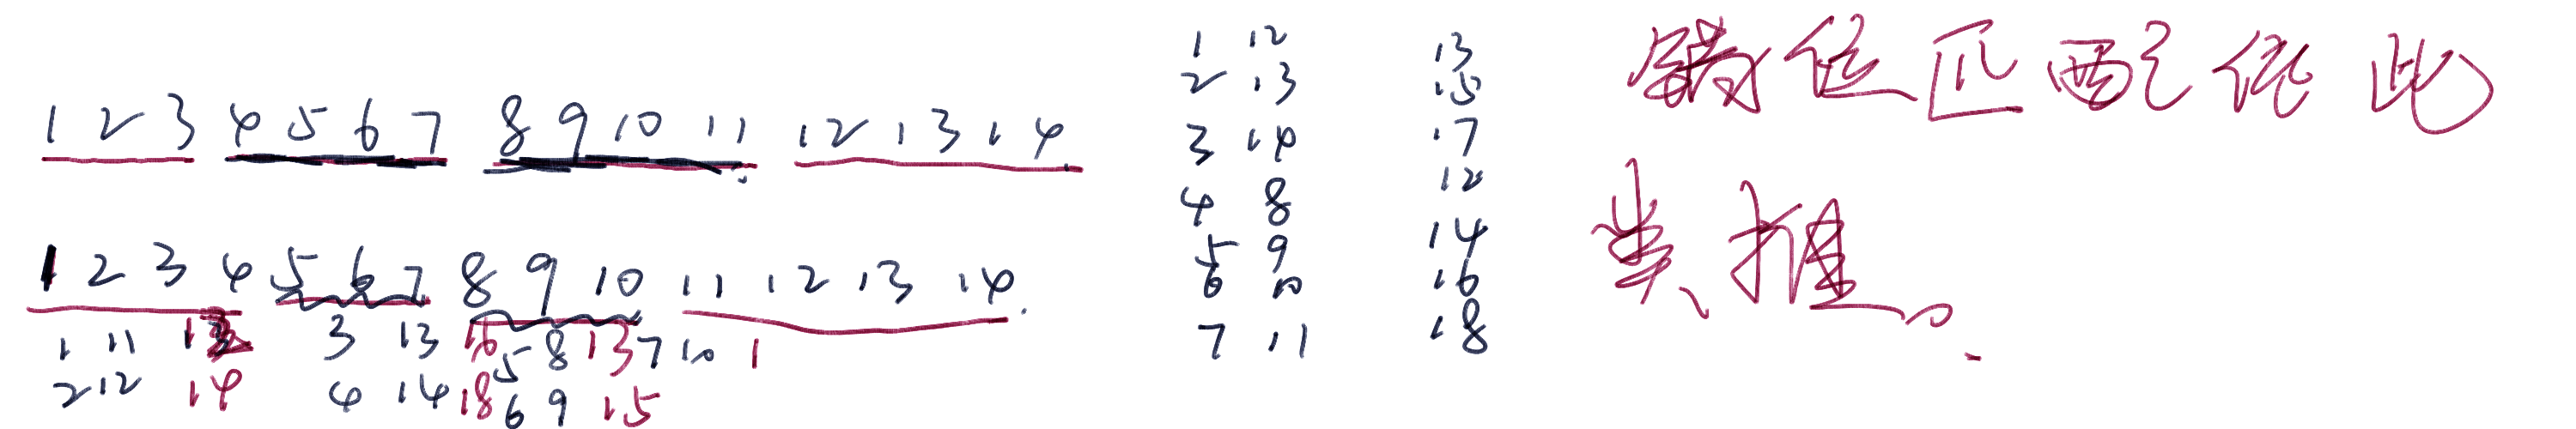 1 2 3 4 5 6 7 8 9 10 11 12 13 14
1 2 3 4 5 6 7 8 9 10 11 12 13 14.
1 11 3 13 16 5 8 13 7 10 1
2 12 14 4 14 18 6 9 15
1 12 13
2 13 15
3 14 17
4 8 12
5 9 14
6 10 16
7 11 18
错位匹配依此
类推。